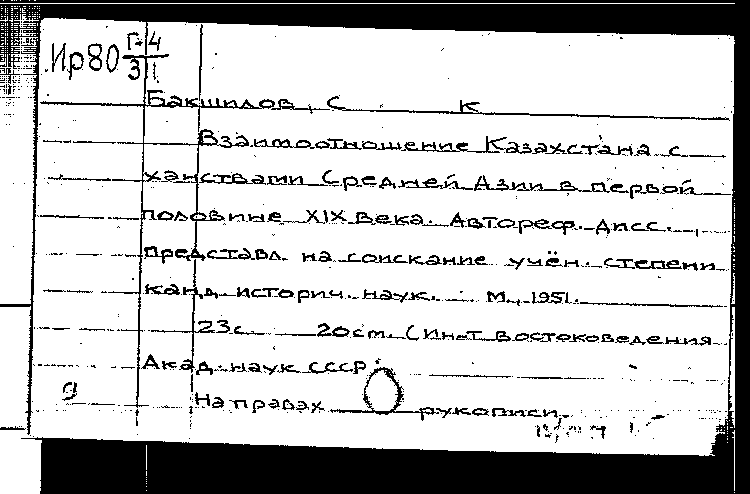 Ир80 Г-4
3 1
Бакшилов, С К
Взаимоотношение Казахстана с
ханствами Средней Азии в первой
половине XIX века. Автореф. дисс.,
представл. на соискание учён. степени
канд. историч. наук. М., 1951.
23с. 20см. (Ин-т востоковедения
Акад. наук СССР.
9
На правах рукописи.